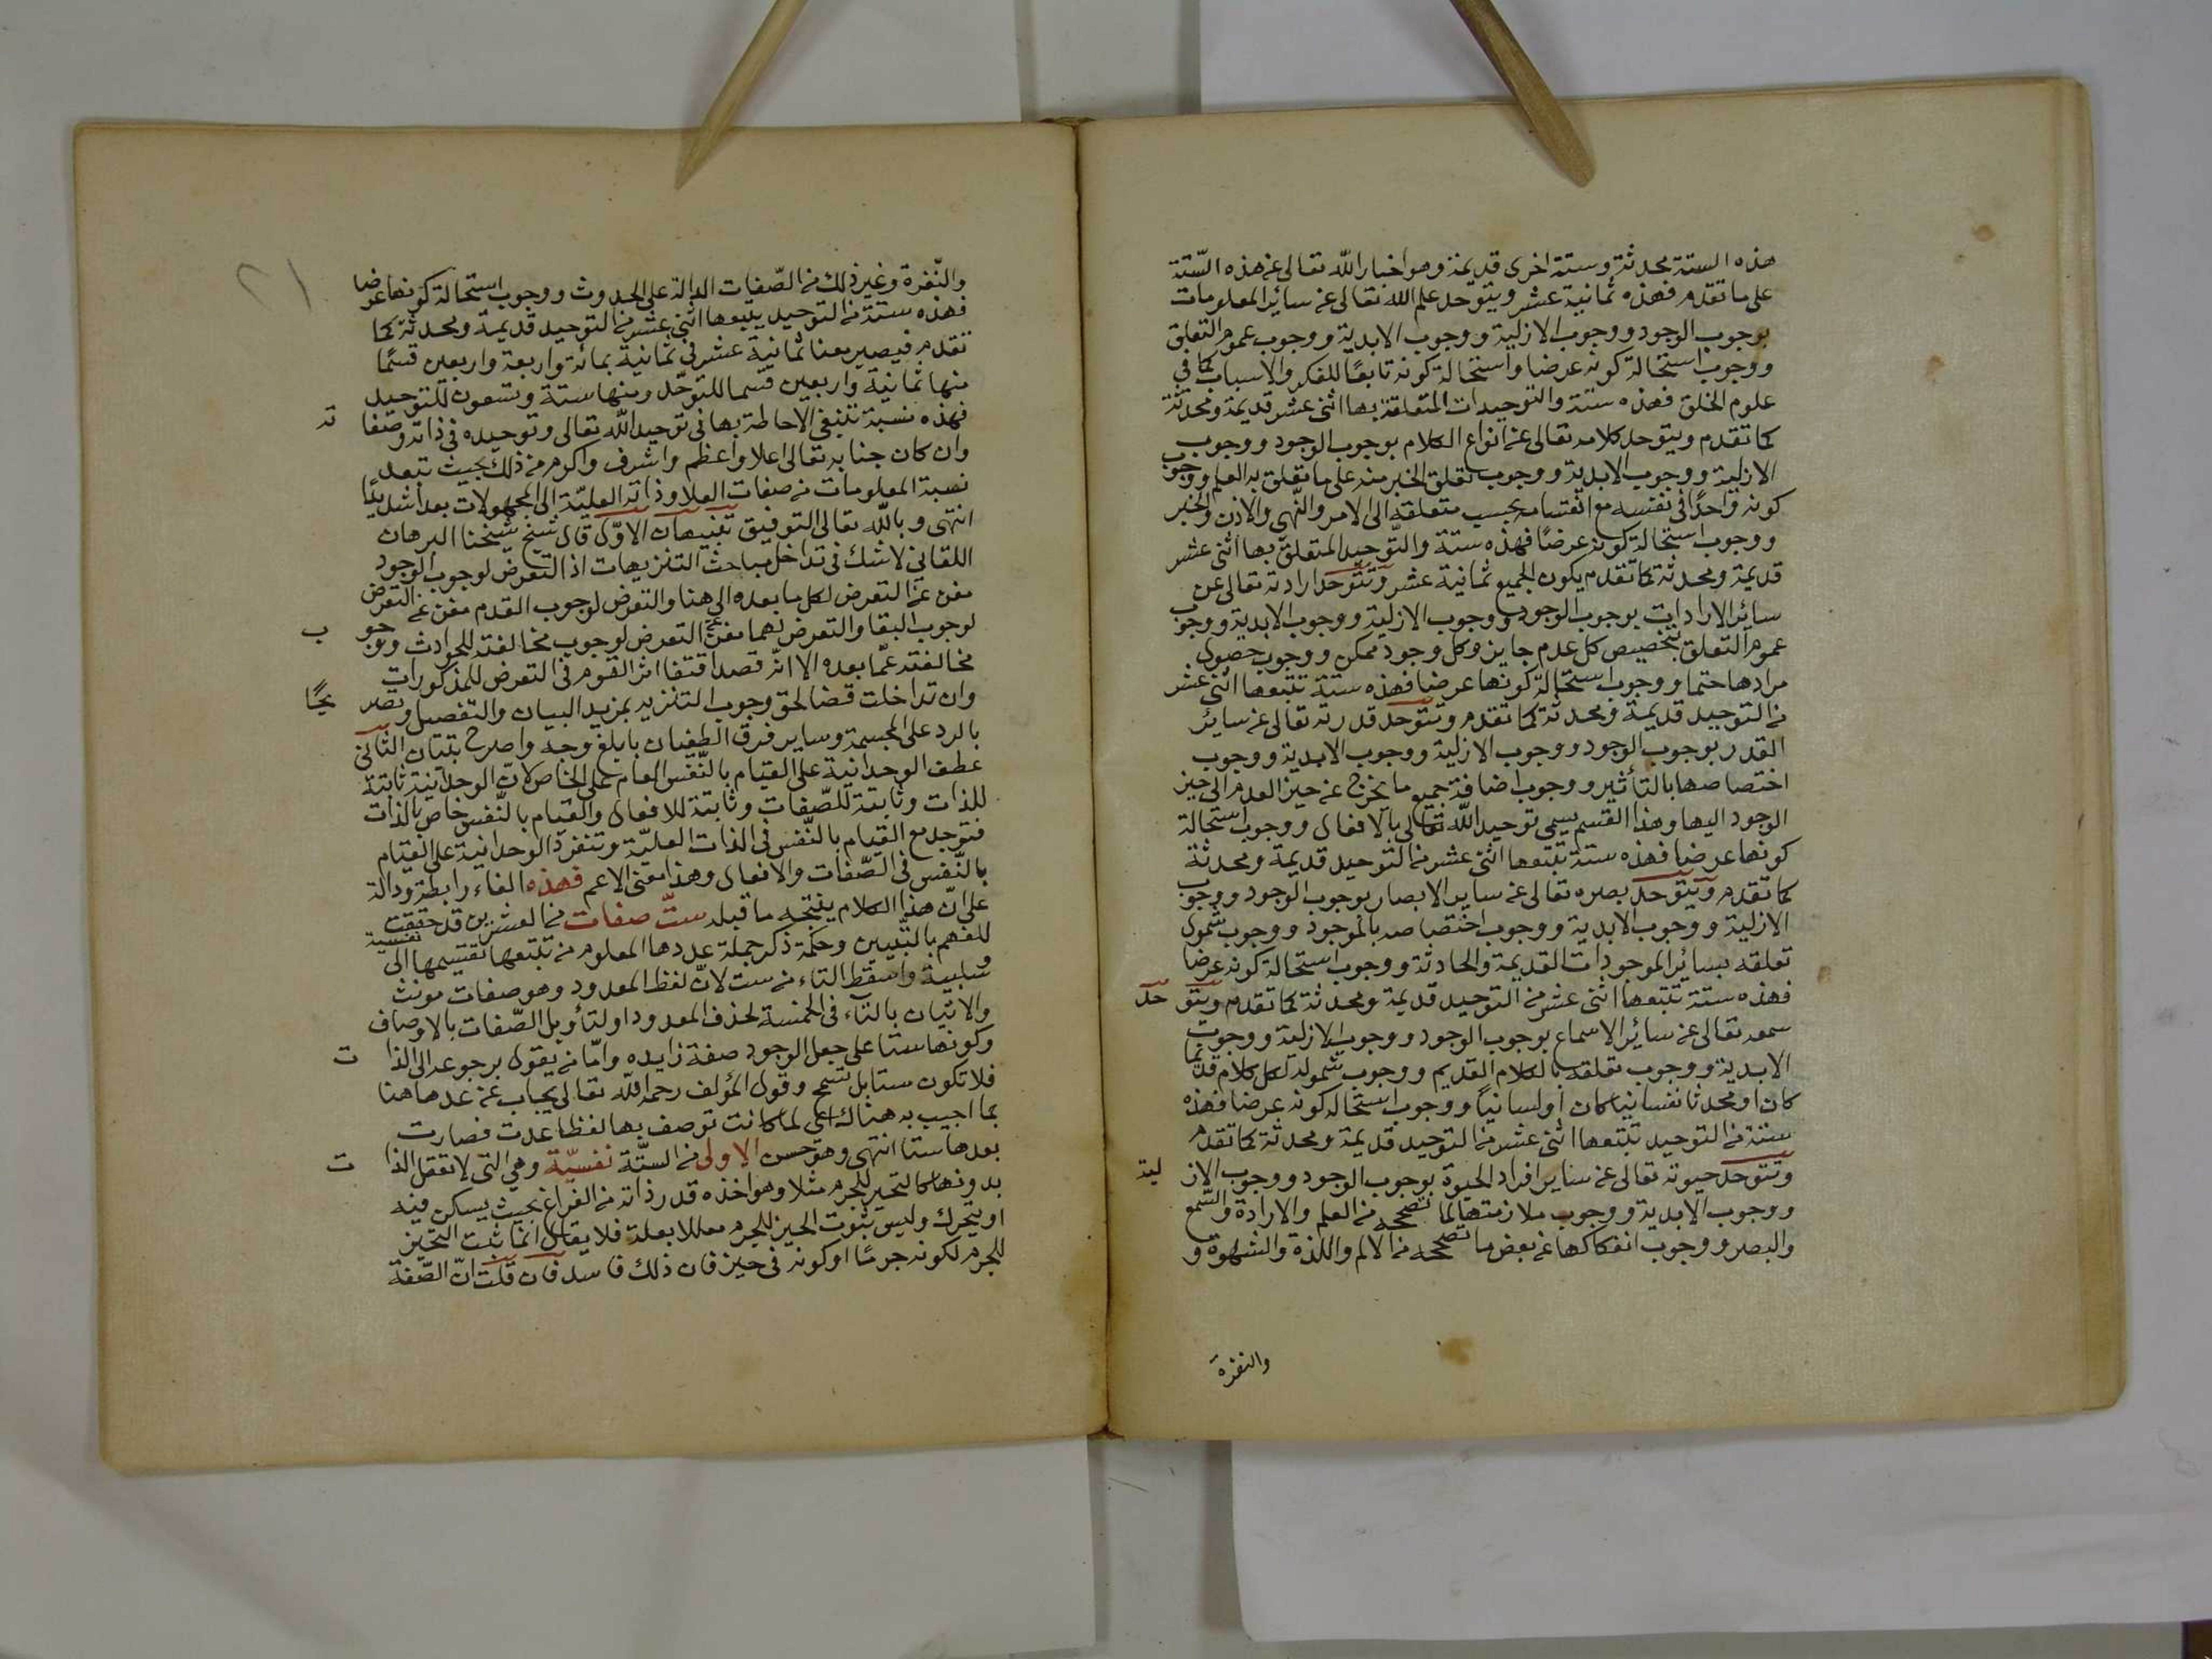 هذه الستة محدثة وستة اخرى قديمة وهو اخبار الله تعالى عن هذه الستة
على ما تقدم فهذه ثمانية عشر ويتوحد علم الله تعالى عن سائر المعلومات
بوجوب الوجود ووجوب الازلية ووجوب الابدية ووجوب عموم التعلق
ووجوب استحالة كونه عرضا واستحالة كونه تابعًا للفكر والاسباب كما في
علوم الخلق فهذه ستة والتوحيدات المتعلقة بها اثنى عشر قديمة ومحدثة
كما تقدم ويتوحد كلامه تعالى عن انواع الكلام بوجوب الوجود ووجوب
الازلية ووجوب الابدية ووجوب تعلق الخبر منه على ما تعلق به العلم ووجوب
كونه واحدًا في نفسه مع انقسامه بحسب متعلقه الى الامر والنّهي والاذن والخبر
ووجوب استحالة كونه عرضًا فهذه ستة والتّوحيد المتعلق بها اثنى عشر
قديمة ومحدثة كما تقدم يكون الجميع ثمانية عشر وتتوحد ارادته تعالى عن
سائر الارادات بوجوب الوجود ووجوب الازلية ووجوب الابدية ووجوب
عموم التعلق بتخصيص كل عدم جايز وكل وجود ممكن ووجوب حصول
مرادها حتما ووجوب استحالة كونها عرضا فهذه ستة تتبعها اثنى عشر
من التوحيد قديمة ومحدثة كما تقدم وتتوحد قدرته تعالى عن سائر
القدر بوجوب الوجود ووجوب الازلية ووجوب الابدية ووجوب
اختصاصها بالتأثير ووجوب اضافة جميع ما يخرج عن حيز العدم الى حيز
الوجود اليها وهذا القسم يسمى توحيد الله تعالى بالافعال ووجوب استحالة
كونها عرضا فهذه ستة يتبعها اثنى عشر من التوحيد قديمة ومحدثة
كما تقدم ويتوحد بصره تعالى عن ساير الابصار بوجوب الوجود ووجوب
الازلية ووجوب الابدية ووجوب اختصاصه بالموجود ووجوب شمول
تعلقه بسائر الموجودات القديمة والحادثة ووجوب استحالة كونه عرضا
فهذه ستة تتبعها اثنى عشر من التوحيد قديمة ومحدثة كما تقدم ويتوحد
سمعه تعالى عن سائر الاسماع بوجوب الوجود ووجوب الازلية ووجوب
الابدية ووجوب تعلقه بالكلام القديم ووجوب شموله لكل كلام قديما
كان او محدثا نفسانيا كان او لسانيًا ووجوب استحالة كونه عرضا فهذه
ستة من التوحيد تتبعها اثنى عشر من التوحيد قديمة ومحدثة كما تقدم
وتتوحد حيوته تعالى عن ساير افراد الحيوة بوجوب الوجود ووجوب الازلية
ووجوب الابدية ووجوب ملازمتها لما تصححه من العلم والارادة والسّمع
والبصر ووجوب انفكاكها عن بعض ما تصححه من الالم واللذة والشهوة و
والنفرة
٢١
والنّفرة وغير ذلك من الصّفات الدالة على الحدوث ووجوب استحالة كونها عرضا
فهذه ستة من التوحيد يتبعها اثنى عشر من التوحيد قديمة ومحدثة كما
تقدم فيصير معنا ثمانية عشر في ثمانية بمائة واربعة واربعين قسمًا
منها ثمانية واربعين قسما للتوحّد ومنها ستة وتسعون للتوحيد
فهذه نسبة تنبغي الاحاطة بها في توحيد الله تعالى وتوحيده في ذاته وصفاته
وان كان جنابه تعالى اعلا واعظم واشرف واكرم من ذلك بحيث تبعد
نسبة المعلومات من صفات العلا وذاته العليّة الى المجهولات بعدا شديدًا
انتهى وبالله تعالى التوفيق تنبيهان الاوّل قال شيخ شيخنا البرهان
اللقاني لا شك في تداخل مباحث التنزيهات اذ التعرض لوجوب الوجود
مغن عن التعرض لكل ما بعده الى هنا والتعرض لوجوب القدم مغن عن التعرض
لوجوب البقا والتعرض لهما مغن عن التعرض لوجوب مخالفته للحوادث ووجوب
مخالفته عمّا بعده الا انه قصد اقتفا اثر القوم في التعرض للمذكورات
وان تداخلت قضا لحق وجوب التنزيه بمزيد البيان والتفصيل وتصريحًا
بالرد على المجسمة وساير فرق الطغيان بابلغ وجه واصرح بتبيان الثاني
عطف الوحدانية على القيام بالنّفس العام على الخاص لان الوحدانية ثابتة
للذات وثابتة للصّفات وثابتة للافعال والقيام بالنّفس خاص بالذات
فتوجد مع القيام بالنّفس في الذات العليّة وتنفرد الوحدانية على القيام
بالنّفس في الصّفات والافعال وهذا معنى الاعم فهذه الفاء رابطة ودالة
على انّ هذا الكلام ينتجه ما قبله ستّ صفات من العشرين قد حققت
للفهم بالتّبيين وحكمة ذكر جملة عددها المعلوم من تتبعها تقسيمها الى نفسية
وسلبية واسقط التاء من ست لانّ لفظ المعدود وهو صفات مونث
والاتيان بالتاء في الخمسة لحذف المعدود او لتأويل الصّفات بالاوصاف
وكونها ستا على جعل الوجود صفة زايده وامّا من يقول برجوعه الى الذات
فلا تكون ستا بل تسمح وقول المؤلف رحمه الله تعالى يجاب عن عدها هنا
بما اجيب به هناك اعني لما كانت توصف بها لفظا عدت فصارت
بعدها ستا انتهى وهو حسن الاولى من الستّة نفسيّة وهي التي لا تعقل الذات
بدونها كالتحيز للجرم مثلا وهو اخذه قدر ذاته من الفراغ بحيث يسكن فيه
او يتحرك وليس ثبوت الحيز للجرم معللا بعلة فلا يقال انما ثبت التحيز
للجرم لكونه جرمًا او كونه في حيز فان ذلك فاسد فان قلت انّ الصّفة